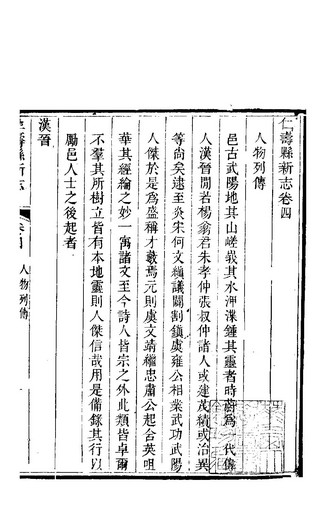 仁壽縣新志卷四
人物列傳
邑古武陽地其山嵯峩其水浬渫鍾其靈者時蔚爲一代偉
人漢晉閒若楊翁君朱孝仲張叔仲諸人或建茂績或治異
等尚矣逮至炎宋何文縝議關割鎮虞雍公相業武功武陽
人傑於是爲盛稱才藪焉元則虞文靖繼忠肅公起合英咀
華其經綸之妙一寓諸文至今詩人皆宗之外此類皆卓爾
不羣其所樹立皆有本地靈則人傑信哉用是備錄其行以
勵邑人士之後起者
漢晉
縣新志
卷四
人物列傳